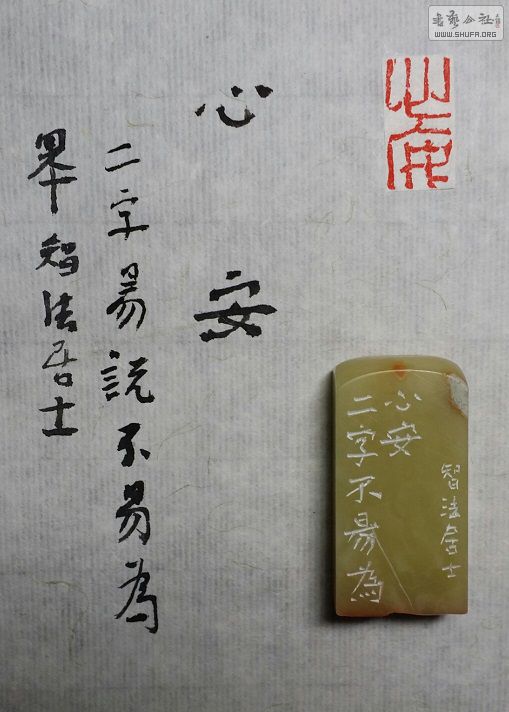 書藝公社
WWW.SHUFA.ORG
心安
心安
二字易說不易為
智法居士
心安
二字不易為
智法居士